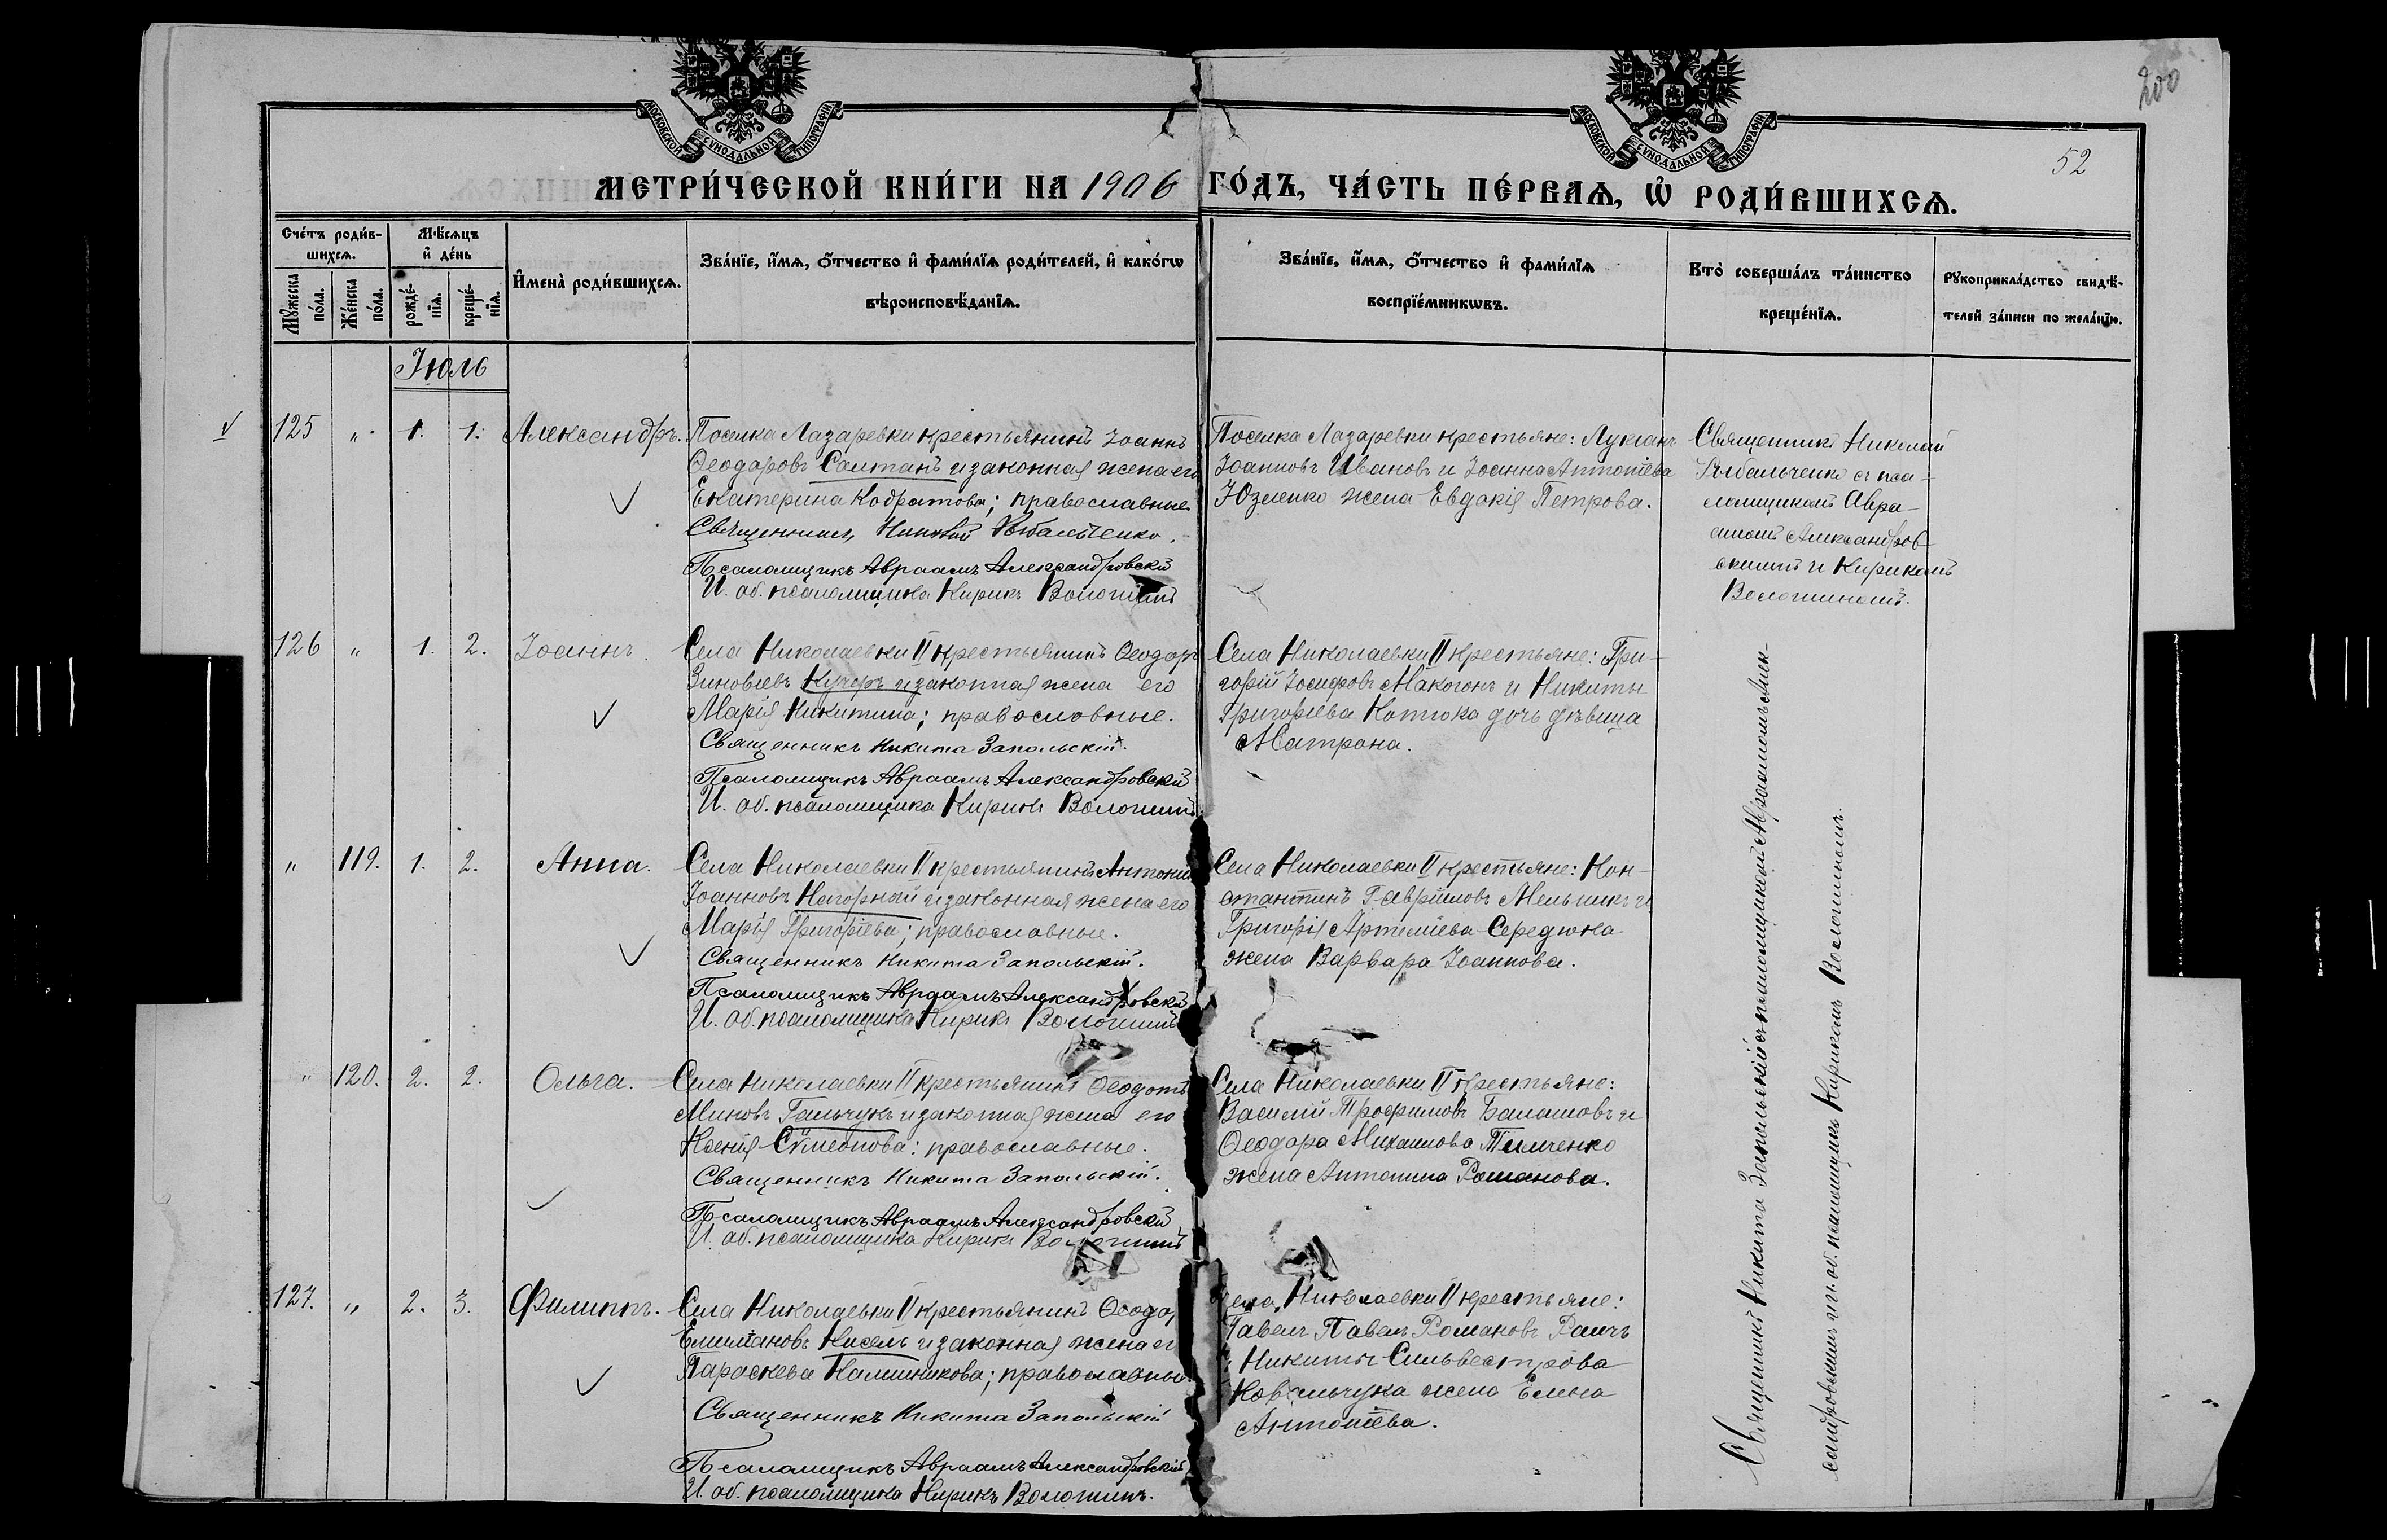 200
52
МОСКОВСКОЙ СѴНОДАЛЬНОЙ ТИПОГРАФІИ
МОСКОВСКОЙ СѴНОДАЛЬНОЙ ТИПОГРАФІИ
МЕТРИ́ЧЕСКОЙ КНИ́ГИ НА 1906 ГО́ДЪ, ЧА́СТЬ ПЕ́РВАѦ, Ѡ҆ РОДИ́ВШИХСѦ.
Сче́тъ роди́в-
шихсѧ.
Мѣ́сѧцъ
и҆ де́нь
Мꙋ́жеска
по́ла.
Же́нска
по́ла.
рожде́-
нїѧ.
креще́-
нїѧ.
И҆мена̀ роди́вшихсѧ.
Зва́нїе, и҆́мѧ, ѻ҆́тчество и҆ фами́лїѧ роди́телей, и҆ како́гѡ
вѣроисповѣ́данїѧ.
Зва́нїе, и҆́мѧ, ѻ҆́тчество и҆ фами́лїѧ
воспрїе́мникѡвъ.
Кто̀ соверша́лъ та́инство
креще́нїѧ.
Рꙋкоприкла́дство свидѣ́-
телей за́писи по жела́нїю.
Іюль
125 " 1. 1. Александръ.
Поселка Лазаревки крестьянинъ Іоаннъ
Ѳеодоровъ Салтанъ и законная жена его
Екатерина Кодратова; православные.
Священникъ Николай Рыбальченко.
Псаломщикъ Авраамъ Александровскій
И. об. псаломщика Кирикъ Волошинъ
Поселка Лазаревки крестьяне: Лукіанъ
Іоанновъ Ивановъ и Іоанна Антоніева
Юзленко жена Евдокія Петрова.
Священникъ Николай
Рыбальченко съ пса-
ломщикомъ Авра-
амомъ Александров-
скимъ и Кирикомъ
Волошиномъ.
126 " 1. 2. Іоаннъ.
Села Николаевки II крестьянинъ Ѳеодоръ
Зиновіевъ Кухоръ и законная жена его
Марія Никитина; православные.
Священникъ Никита Запольскій.
Псаломщикъ Авраамъ Александровскій
И. об. псаломщика Кирикъ Волошинъ
Села Николаевки II крестьяне: Гри-
горій Іосифовъ Макогонъ и Никиты
Григоріева Котюка дочь дѣвица
Матрона.
" 119. 1. 2. Анна.
Села Николаевки II крестьянинъ Антоній
Іоанновъ Нагорный и законная жена его
Марія Григоріева; православные.
Священникъ Никита Запольскій.
Псаломщикъ Авраамъ Александровскій
И. об. псаломщика Кирикъ Волошинъ
Села Николаевки II крестьяне: Кон-
стантинъ Гавріиловъ Мельникъ и
Григорія Артеміева Середюка
жена Варвара Іоаннова.
" 120. 2. 2. Ольга.
Села Николаевки II крестьянинъ Ѳеодотъ
Миновъ Гальчукъ и законная жена его
Ксенія Сѵмеонова; православные.
Священникъ Никита Запольскій.
Псаломщикъ Авраамъ Александровскій
И. об. псаломщика Кирикъ Волошинъ
Села Николаевки II крестьяне:
Василій Трофимовъ Балашовъ и
Ѳеодора Михаилова Тимченко
жена Антонина Романова.
127. " 2. 3. Филиппъ.
Села Николаевки II крестьянинъ Ѳеодоръ
Емиліановъ Кисель и законная жена его
Параскева Каллиникова; православные.
Священникъ Никита Запольскій
Псаломщикъ Авраамъ Александровскій
И. об. псаломщика Кирикъ Волошинъ.
Села Николаевки II крестьяне:
Павелъ Романовъ
Никиты Сильвестрова
Ковальчука жена Елена
Антоніева.
Священникъ Никита Запольскій съ псаломщикомъ Авраамомъ Алек-
сандровскимъ и и. об. псаломщика Кирикомъ Волошиномъ.